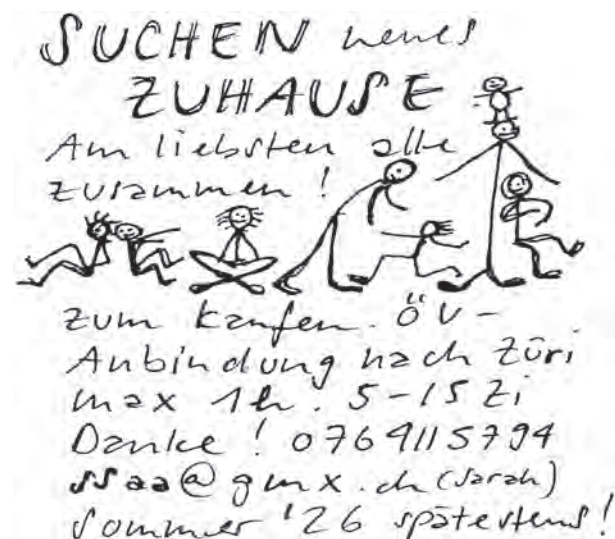 SUCHEN neues
ZUHAUSE
Am liebsten alle
zusammen!
zum kaufen. ÖV-
Anbindung nach Züri
max 1h. 5-15 Zi
Danke! 0769115794
ssaa@gmx.ch (Sarah)
Sommer '26 spätestens!